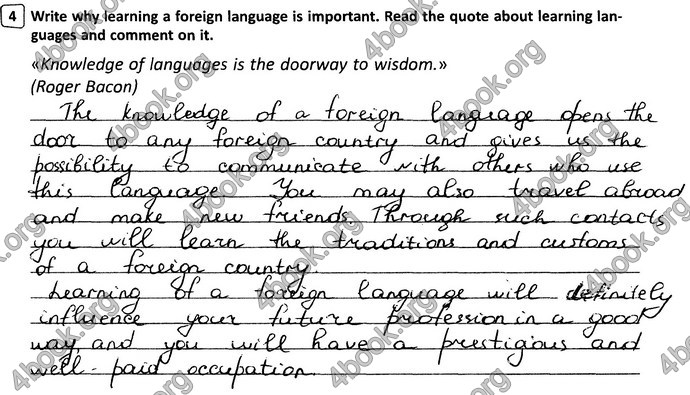 4 Write why learning a foreign language is important. Read the quote about learning lan-
guages and comment on it.
«Knowledge of languages is the doorway to wisdom.»
(Roger Bacon)
The knowledge of a foreign language opens the
door to any foreign country and gives us the
possibility to communicate with others who use
this language. You may also travel abroad
and make new friends. Through such contacts
you will learn the traditions and customs
of a foreign country.
Learning of a foreign language will definitely
influence your future profession in a good
way and you will have a prestigious and
well-paid occupation.
4book.org
4book.org
4book.org
4book.org
4book.org
4book.org
4book.org
4book.org